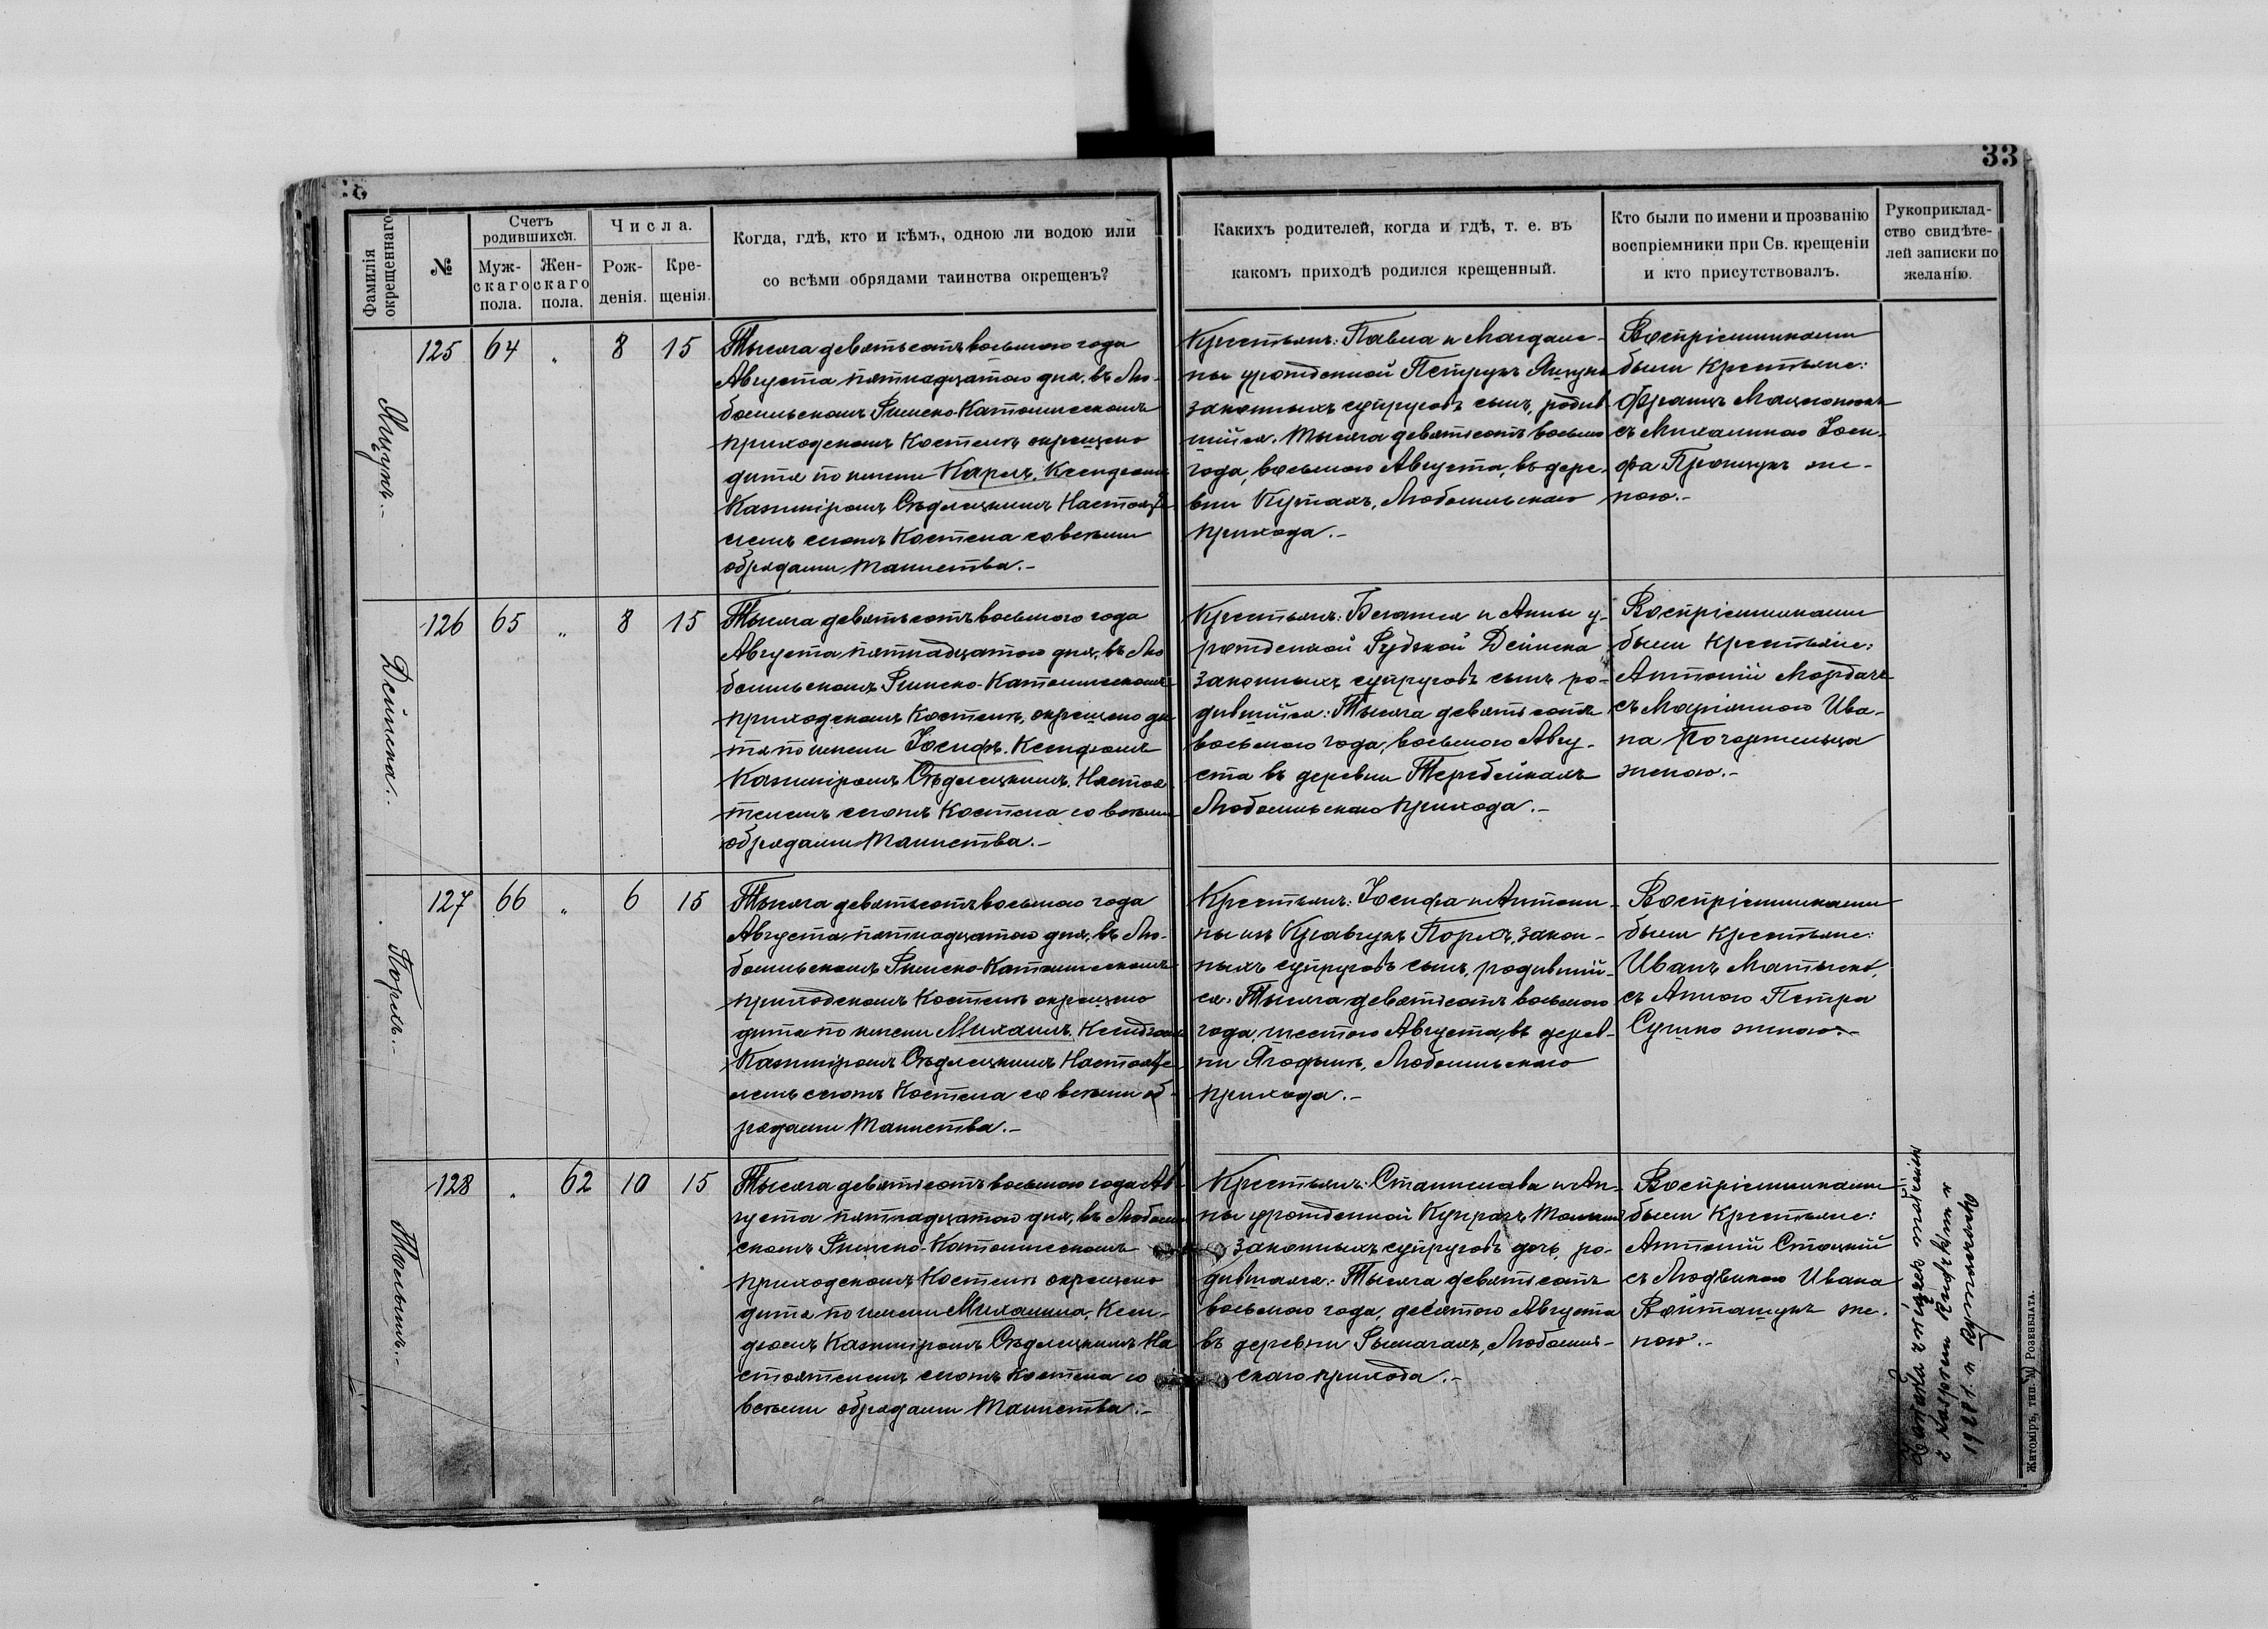 33
Фамилія окрещеннаго.
№
Счетъ родившихся.
Муж-
скаго
пола.
Жен-
скаго
пола.
Числа.
Рож-
денія.
Кре-
щенія.
Когда, гдѣ, кто и кѣмъ, одною ли водою или
со всѣми обрядами таинства окрещенъ?
Какихъ родителей, когда и гдѣ, т. е. въ
какомъ приходѣ родился крещенный.
Кто были по имени и прозванію
воспріемники при Св. крещеніи
и кто присутствовалъ.
Рукоприклад-
ство свидѣте-
лей записки по
желанію.
Ящукъ.-
125 64 „ 8 15
Тысяча девятьсотъ восьмого года
Августа пятнадцатого дня, въ Лю-
бомльскомъ Римско-Католическомъ
приходскомъ Костелѣ окрещено
дитя по имени Карлъ, Ксендзомъ
Казиміромъ Сѣдлецкимъ Настояте-
лемъ сего Костела со всѣми
обрядами Таинства.-
Крестьянъ: Павла и Магдале-
ны урожденной Петрукъ Ящукъ
законныхъ супруговъ сынъ, родив-
шійся. Тысяча девятьсотъ восьмого
года, восьмого Августа, въ дере-
вни Кутахъ, Любомльскаго
прихода.-
Воспріемниками
были Крестьяне:
Францъ
съ Михалиною Іоси-
фа женою.-
Дейнека.
126 65 „ 8 15
Тысяча девятьсотъ восьмого года
Августа пятнадцатого дня, въ Лю-
бомльскомъ Римско-Католическомъ
приходскомъ Костелѣ, окрещено ди-
тя по имени Іосифъ. Ксендзомъ
Казиміромъ Сѣдлецкимъ, Настоя-
телемъ сего Костела со всѣми
обрядами Таинства.-
Крестьянъ: и Анны у-
рожденной Рудской Дейнека
законныхъ супруговъ сынъ ро-
дившійся: Тысяча девятьсотъ
восьмого года, восьмого Авгу-
ста въ деревни Теребейкахъ
Любомльскаго прихода.-
Воспріемниками
были Крестьяне:
Антоній
съ Маріянною Ива-
на
женою.-
Порхъ.-
127 66 „ 6 15
Тысяча девятьсотъ восьмого года
Августа пятнадцатого дня, въ Лю-
бомльскомъ Римско-Католическомъ
приходскомъ Костелѣ окрещено
дитя по имени Михаилъ, Ксендзомъ
Казиміромъ Сѣдлецкимъ Настояте-
лемъ сего Костела со всѣми об-
рядами Таинства.-
Крестьянъ: Іосифа и Антони-
ны изъ Кравчукъ Порхъ, закон-
ныхъ супруговъ сынъ, родившій-
ся. Тысяча девятьсотъ восьмого
года, шестого Августа, въ дерев-
ни Ягодынѣ, Любомльскаго
прихода.-
Воспріемниками
были Крестьяне:
Иванъ
съ Анною Петра
Сушко женою.-
128 „ 62 10 15
Тысяча девятьсотъ восьмого года Ав-
густа пятнадцатого дня, въ Любомль-
скомъ Римско-Католическомъ
приходскомъ Костелѣ окрещено
дитя по имени Михалина, Ксен-
дзомъ Казиміромъ Сѣдлецкимъ На-
стоятелемъ сего Костела со
всѣми обрядами Таинства.-
Крестьянъ: Станислава и Ан-
ны урожденной
законныхъ супруговъ дочь, ро-
дившаяся: Тысяча девятьсотъ
восьмого года, десятого Августа
въ деревни Рымачахъ, Любомль-
скаго прихода.-
Воспріемниками
были Крестьяне:
Антоній Стоцкій
съ Людвикою Ивана
Войтащукъ же-
ною.-
Zawarła związek małżeński
1928 r. w Rymaczach
Житоміръ, тип. М. Розенблата.